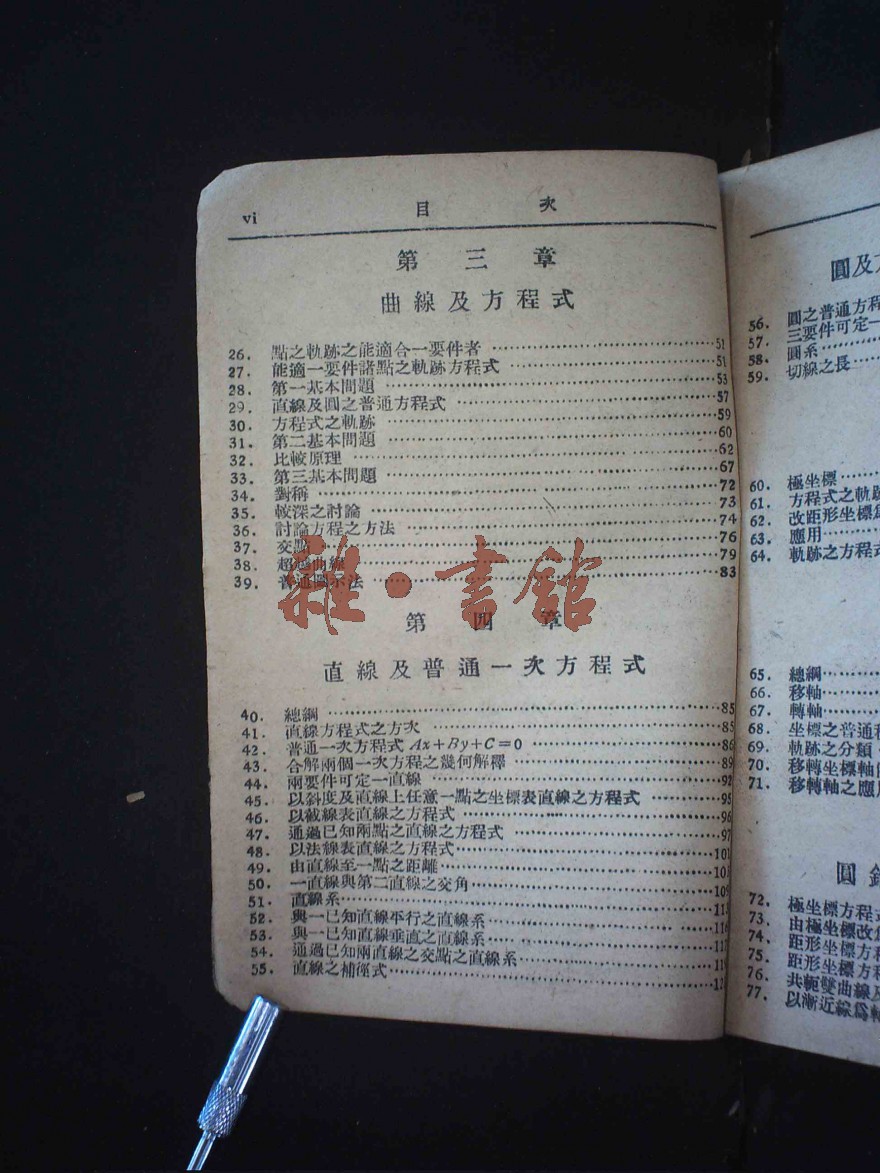 vi 目 次
第 三 章
曲線及方程式
26. 點之軌跡之能適合一要件者 51
27. 能適一要件諸點之軌跡方程式 51
28. 第一基本問題 53
29. 直線及圓之普通方程式 57
30. 方程式之軌跡 59
31. 第二基本問題 60
32. 比較原理 62
33. 第三基本問題 67
34. 對稱 72
35. 較深之討論 73
36. 討論方程之方法 74
37. 交點 76
38. 超越曲線 79
39. 普通圖示法 83
雜·書館
第 四 章
直線及普通一次方程式
40. 總綱 85
41. 直線方程式之方次 85
42. 普通一次方程式 Ax+By+C=0 86
43. 合解兩個一次方程之幾何解釋 89
44. 兩要件可定一直線 92
45. 以斜度及直線上任意一點之坐標表直線之方程式 95
46. 以截線表直線之方程式 96
47. 通過已知兩點之直線之方程式 97
48. 以法線表直線之方程式 101
49. 由直線至一點之距離
50. 一直線與第二直線之交角 109
51. 直線系
52. 與一已知直線平行之直線系
53. 與一已知直線垂直之直線系
54. 通過已知兩直線之交點之直線系
55. 直線之補徑式
圓及
56. 圓之普通方程
57. 三要件可定一
58. 圓系
59. 切線之長
60. 極坐標
61. 方程式之軌跡
62. 改距形坐標爲
63. 應用
64. 軌跡之方程式
65. 總綱
66. 移軸
67. 轉軸
68. 坐標之普通
69. 軌跡之分類
70. 移轉坐標軸
71. 移轉軸之應用
圓
72. 極坐標方程式
73. 由極坐標改
74. 距形坐標方
75. 距形坐標方
76. 共軛雙曲線及
77. 以漸近線爲軸